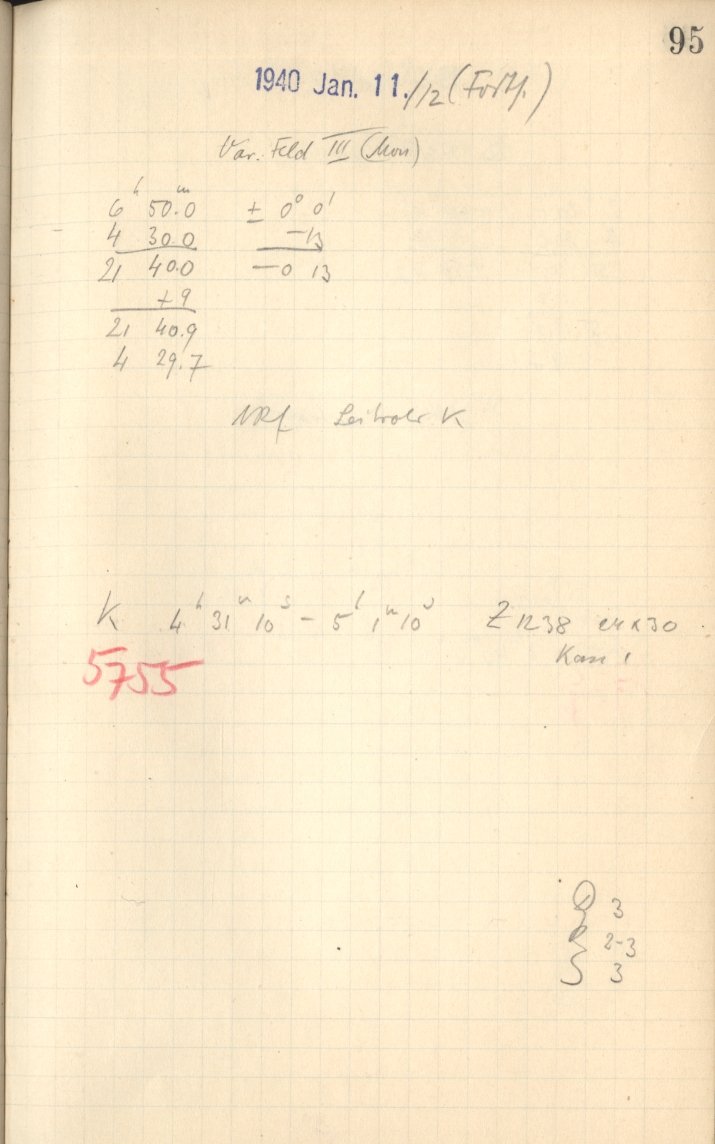 95
1940 Jan. 11./12 (Forts.)
Var. Feld III (Mon)
6ʰ 50.0ᵐ ± 0° 0'
4 30.0 -13
21 40.0 -0 13
+9
21 40.9
4 29.7
Leitrohr K
K 4ʰ 31ᵐ 10ˢ - 5ʰ 1ᵐ 10ˢ Z 1238 24x30
Kass 1
5755
Q 3
R 2-3
S 3